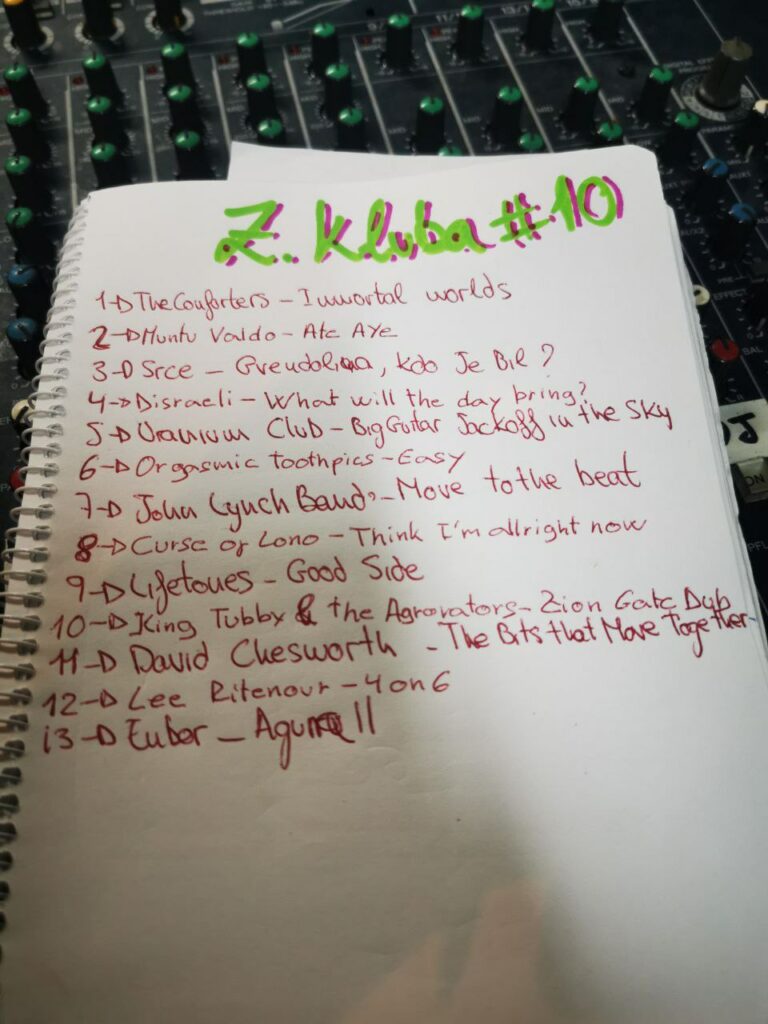 Z. Kluba #10
1→ The Conforters – Immortal worlds
2→ Muntu Valdo – Ate Aye
3→ Srce – Gvendolina, kdo Je Bil?
4→ Disraeli – What will the day bring?
5→ Uranium Club – Big Guitar Jackoff in the Sky
6→ Orgasmic toothpics – Easy
7→ John Lynch Band – Move to the beat
8→ Curse of Lono – Think I'm allright now
9→ Lifetones – Good Side
10→ King Tubby & the Agrovators – Zion Gate Dub
11→ David Chesworth – The Bits that Move Together
12→ Lee Ritenour – 4 on 6
13→ Euber –
BAL
EFFECT
PRE
MID
ON
PFL